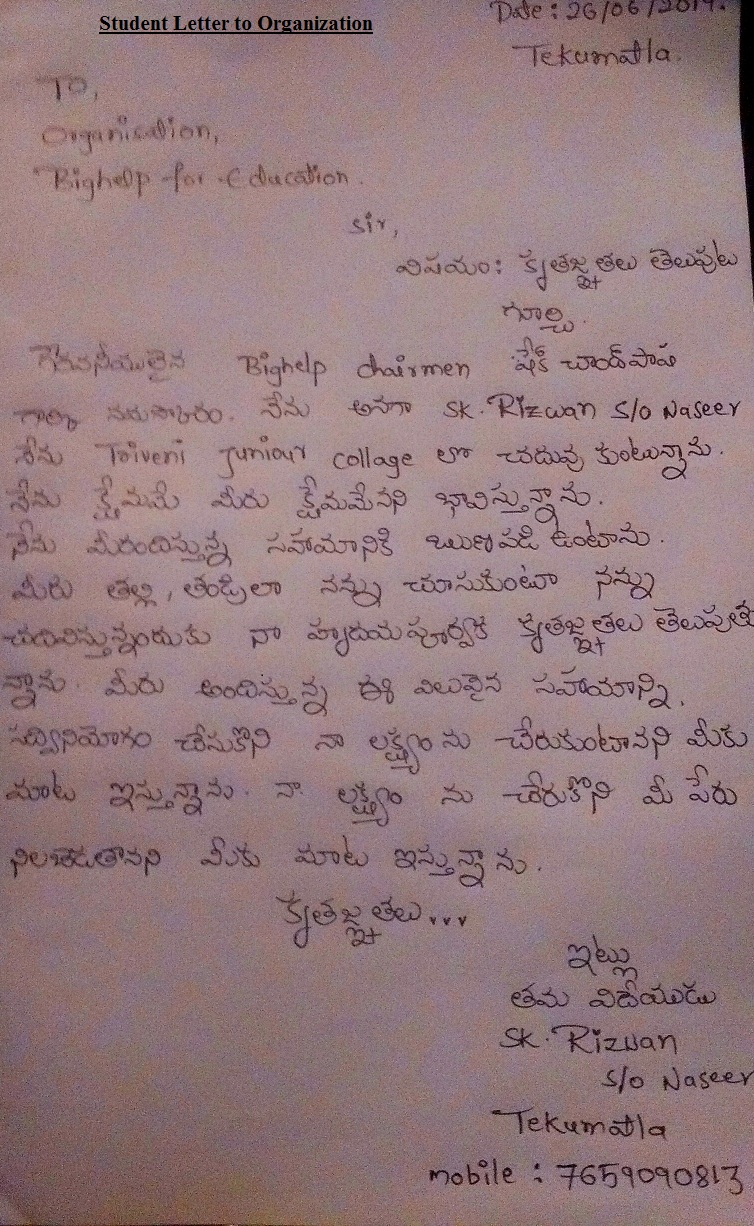 Student Letter to Organization
Date: 26/06/2019.
Tekumatla.
To,
Organisation,
Bighelp for Education.
Sir,
విషయం: కృతజ్ఞతలు తెలుపుట
గూర్చి.
గౌరవనీయులైన Bighelp chairmen షేక్ చాంద్‌పాష
గారికి నమస్కారం. నేను అనగా SK. Rizwan S/o Naseer
నేను Triveni Juniour collage లో చదువు కుంటున్నాను.
నేను క్షేమమే మీరు క్షేమమేనని భావిస్తున్నాను.
నేను మీరందిస్తున్న సహాయానికి ఋణపడి ఉంటాను.
మీరు తల్లి, తండ్రిలా నన్ను చూసుకుంటూ నన్ను
చదివిస్తున్నందుకు నా హృదయపూర్వక కృతజ్ఞతలు తెలుపుతు
న్నాను. మీరు అందిస్తున్న ఈ విలువైన సహాయాన్ని,
సద్వినియోగం చేసుకొని నా లక్ష్యం ను చేరుకుంటానని మీకు
మాట ఇస్తున్నాను. నా లక్ష్యం ను చేరుకొని మీ పేరు
నిలబెడతానని మీకు మాట ఇస్తున్నాను.
కృతజ్ఞతలు...
ఇట్లు
తమ విధేయుడు
SK. Rizwan
S/o Naseer
Tekumatla
mobile : 7659090813